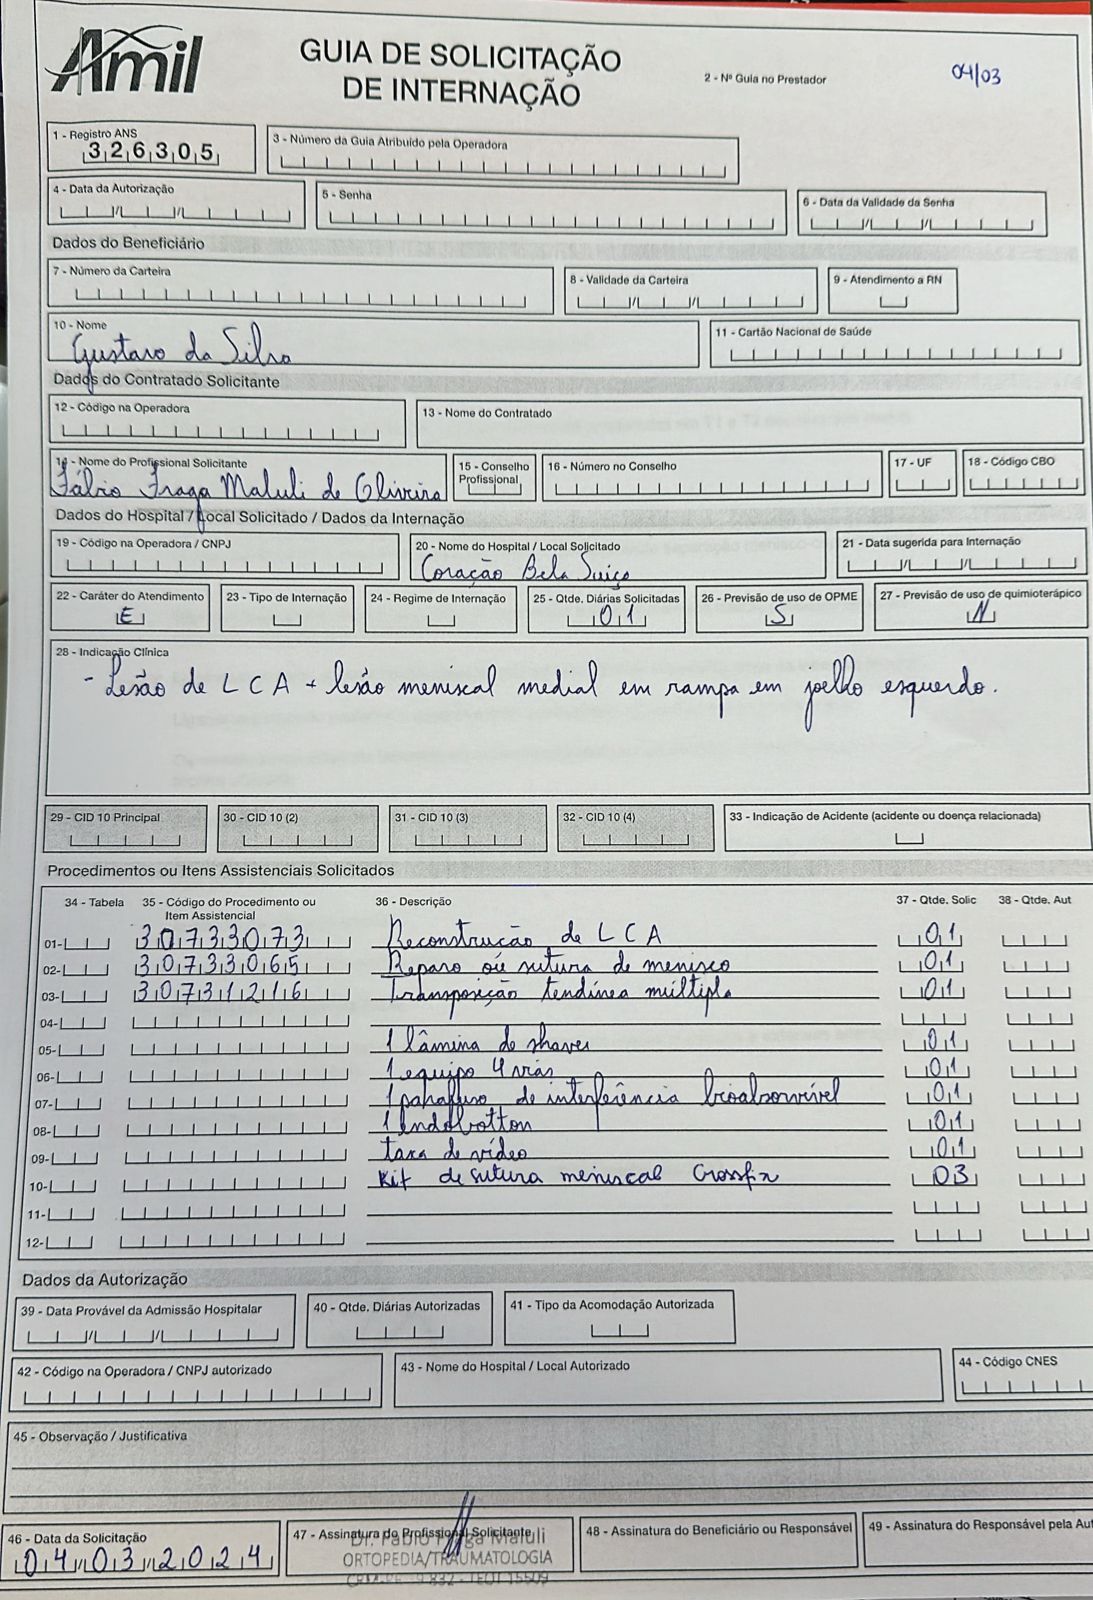 Amil
GUIA DE SOLICITAÇÃO
DE INTERNAÇÃO
2 - Nº Guia no Prestador
04/03
1 - Registro ANS
326305
3 - Número da Guia Atribuído pela Operadora
4 - Data da Autorização
5 - Senha
6 - Data da Validade da Senha
Dados do Beneficiário
7 - Número da Carteira
8 - Validade da Carteira
9 - Atendimento a RN
10 - Nome
Gustavo da Silva
11 - Cartão Nacional de Saúde
Dados do Contratado Solicitante
12 - Código na Operadora
13 - Nome do Contratado
14 - Nome do Profissional Solicitante
Fábio Fraga Maluli de Oliveira
15 - Conselho Profissional
16 - Número no Conselho
17 - UF
18 - Código CBO
Dados do Hospital / Local Solicitado / Dados da Internação
19 - Código na Operadora / CNPJ
20 - Nome do Hospital / Local Solicitado
Coração Bela Suiço
21 - Data sugerida para Internação
22 - Caráter do Atendimento
E
23 - Tipo de Internação
24 - Regime de Internação
25 - Qtde. Diárias Solicitadas
01
26 - Previsão de uso de OPME
S
27 - Previsão de uso de quimioterápico
N
28 - Indicação Clínica
- Lesão de LCA + lesão meniscal medial em rampa em joelho esquerdo.
29 - CID 10 Principal
30 - CID 10 (2)
31 - CID 10 (3)
32 - CID 10 (4)
33 - Indicação de Acidente (acidente ou doença relacionada)
Procedimentos ou Itens Assistenciais Solicitados
34 - Tabela
35 - Código do Procedimento ou
Item Assistencial
36 - Descrição
37 - Qtde. Solic
38 - Qtde. Aut
01- 30733073 Reconstrução de LCA 01
02- 30733065 Reparo ou sutura de menisco 01
03- 30731216 Transposição tendínea múltipla 01
04-
05- 1 lâmina de shaver 01
06- 1 equipo 4 vias 01
07- 1 parafuso de interferência bioabsorvível 01
08- 1 endobotton 01
09- taxa de vídeo 01
10- Kit de sutura meniscal Crossfix 03
11-
12-
Dados da Autorização
39 - Data Provável da Admissão Hospitalar
40 - Qtde. Diárias Autorizadas
41 - Tipo da Acomodação Autorizada
42 - Código na Operadora / CNPJ autorizado
43 - Nome do Hospital / Local Autorizado
44 - Código CNES
45 - Observação / Justificativa
46 - Data da Solicitação
04/03/2024
47 - Assinatura do Profissional Solicitante
Dr. Fábio Fraga Maluli
ORTOPEDIA/TRAUMATOLOGIA
48 - Assinatura do Beneficiário ou Responsável
49 - Assinatura do Responsável pela Aut